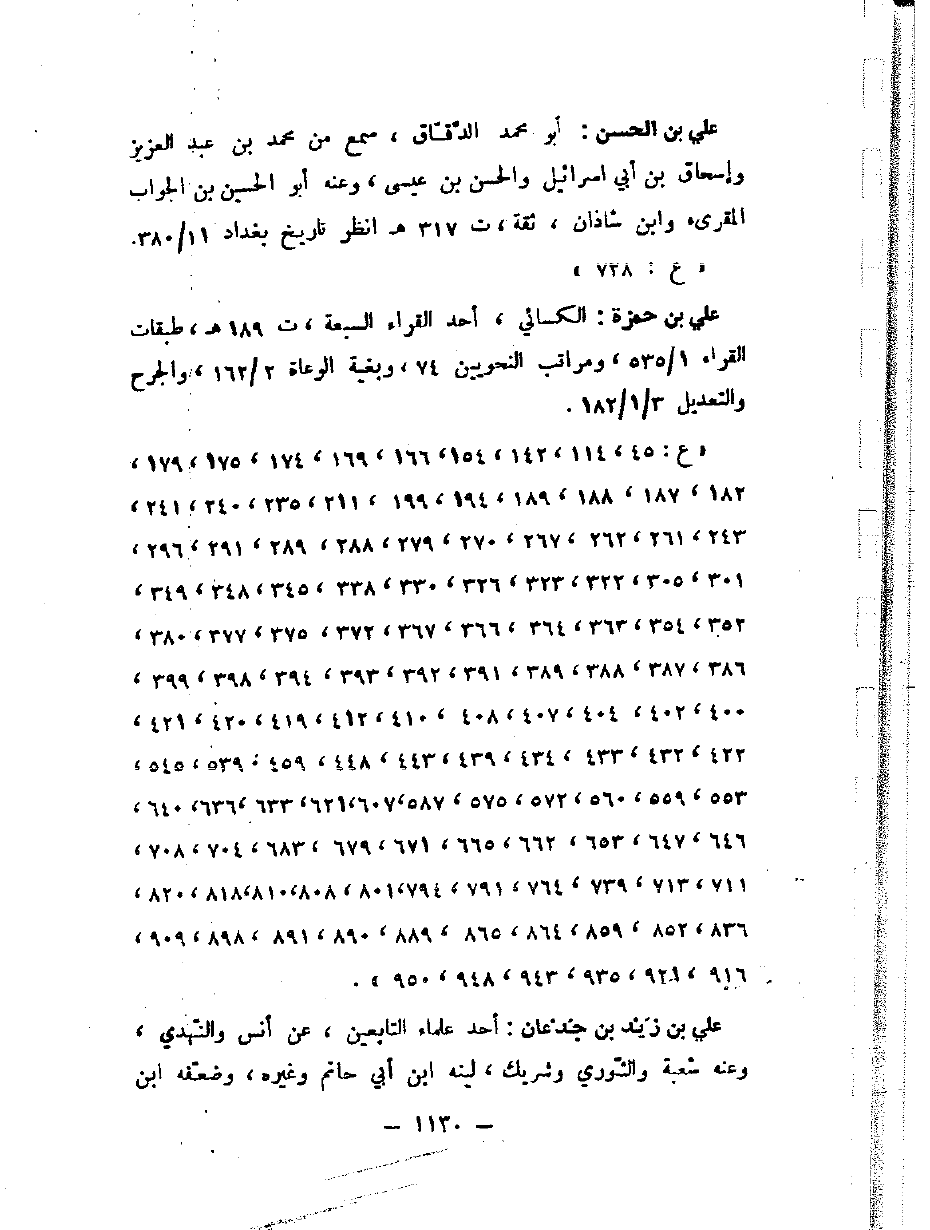 علي بن الحسن : أبو محمد الدقّاق ، سمع من محمد بن عبد العزيز
وإسحاق بن أبي اسرائيل والحسن بن عيسى ، وعنه أبو الحسين بن الجواب
المقرىء وابن شاذان ، ثقة ، ت ٣١٧ هـ انظر تاريخ بغداد ٣٨٠/١١.
« ع : ٧٢٨ »
علي بن حمزة : الكسائي ، أحد القراء السبعة ، ت ١٨٩ هـ ، طبقات
القراء ٥٣٥/١ ، ومراتب النحويين ٧٤ ، وبغية الوعاة ١٦٢/٢ ، والجرح
والتعديل ١٨٢/١/٣ .
« ع : ٤٥ ، ١١٤ ، ١٤٢ ، ١٥٤ ، ١٦٦ ، ١٦٩ ، ١٧٤ ، ١٧٥ ، ١٧٩ ،
١٨٢ ، ١٨٧ ، ١٨٨ ، ١٨٩ ، ١٩٤ ، ١٩٩ ، ٢١١ ، ٢٣٥ ، ٢٤٠ ، ٢٤١ ،
٢٤٣ ، ٢٦١ ، ٢٦٢ ، ٢٦٧ ، ٢٧٠ ، ٢٧٩ ، ٢٨٨ ، ٢٨٩ ، ٢٩١ ، ٢٩٦ ،
٣٠١ ، ٣٠٥ ، ٣٢٢ ، ٣٢٣ ، ٣٢٦ ، ٣٣٠ ، ٣٣٨ ، ٣٤٥ ، ٣٤٨ ، ٣٤٩ ،
٣٥٢ ، ٣٥٤ ، ٣٦٣ ، ٣٦٤ ، ٣٦٦ ، ٣٦٧ ، ٣٧٢ ، ٣٧٥ ، ٣٧٧ ، ٣٨٠ ،
٣٨٦ ، ٣٨٧ ، ٣٨٨ ، ٣٨٩ ، ٣٩١ ، ٣٩٢ ، ٣٩٣ ، ٣٩٤ ، ٣٩٨ ، ٣٩٩ ،
٤٠٠ ، ٤٠٢ ، ٤٠٤ ، ٤٠٧ ، ٤٠٨ ، ٤١٠ ، ٤١٢ ، ٤١٩ ، ٤٢٠ ، ٤٢١ ،
٤٢٢ ، ٤٣٢ ، ٤٣٣ ، ٤٣٤ ، ٤٣٩ ، ٤٤٣ ، ٤٤٨ ، ٤٥٩ ، ٥٣٩ ، ٥٤٥ ،
٥٥٣ ، ٥٥٩ ، ٥٦٠ ، ٥٧٢ ، ٥٧٥ ، ٥٨٧ ، ٦٠٧ ، ٦٢١ ، ٦٣٣ ، ٦٣٦ ، ٦٤٠ ،
٦٤٦ ، ٦٤٧ ، ٦٥٣ ، ٦٦٢ ، ٦٦٥ ، ٦٧١ ، ٦٧٩ ، ٦٨٣ ، ٧٠٤ ، ٧٠٨ ،
٧١١ ، ٧١٣ ، ٧٣٩ ، ٧٦٤ ، ٧٩١ ، ٧٩٤ ، ٨٠١ ، ٨٠٨ ، ٨١٠ ، ٨١٨ ، ٨٢٠ ،
٨٣٦ ، ٨٥٢ ، ٨٥٩ ، ٨٦٤ ، ٨٦٥ ، ٨٨٩ ، ٨٩٠ ، ٨٩١ ، ٨٩٨ ، ٩٠٩ ،
٩١٦ ، ٩٢١ ، ٩٣٥ ، ٩٤٣ ، ٩٤٨ ، ٩٥٠ » .
علي بن زَيْد بن جُدْعان : أحد علماء التابعين ، عن أنس والنّهدي ،
وعنه شعبة والثّوري وشريك ، لينه ابن أبي حاتم وغيره ، وضعّفه ابن
— ١١٣٠ —